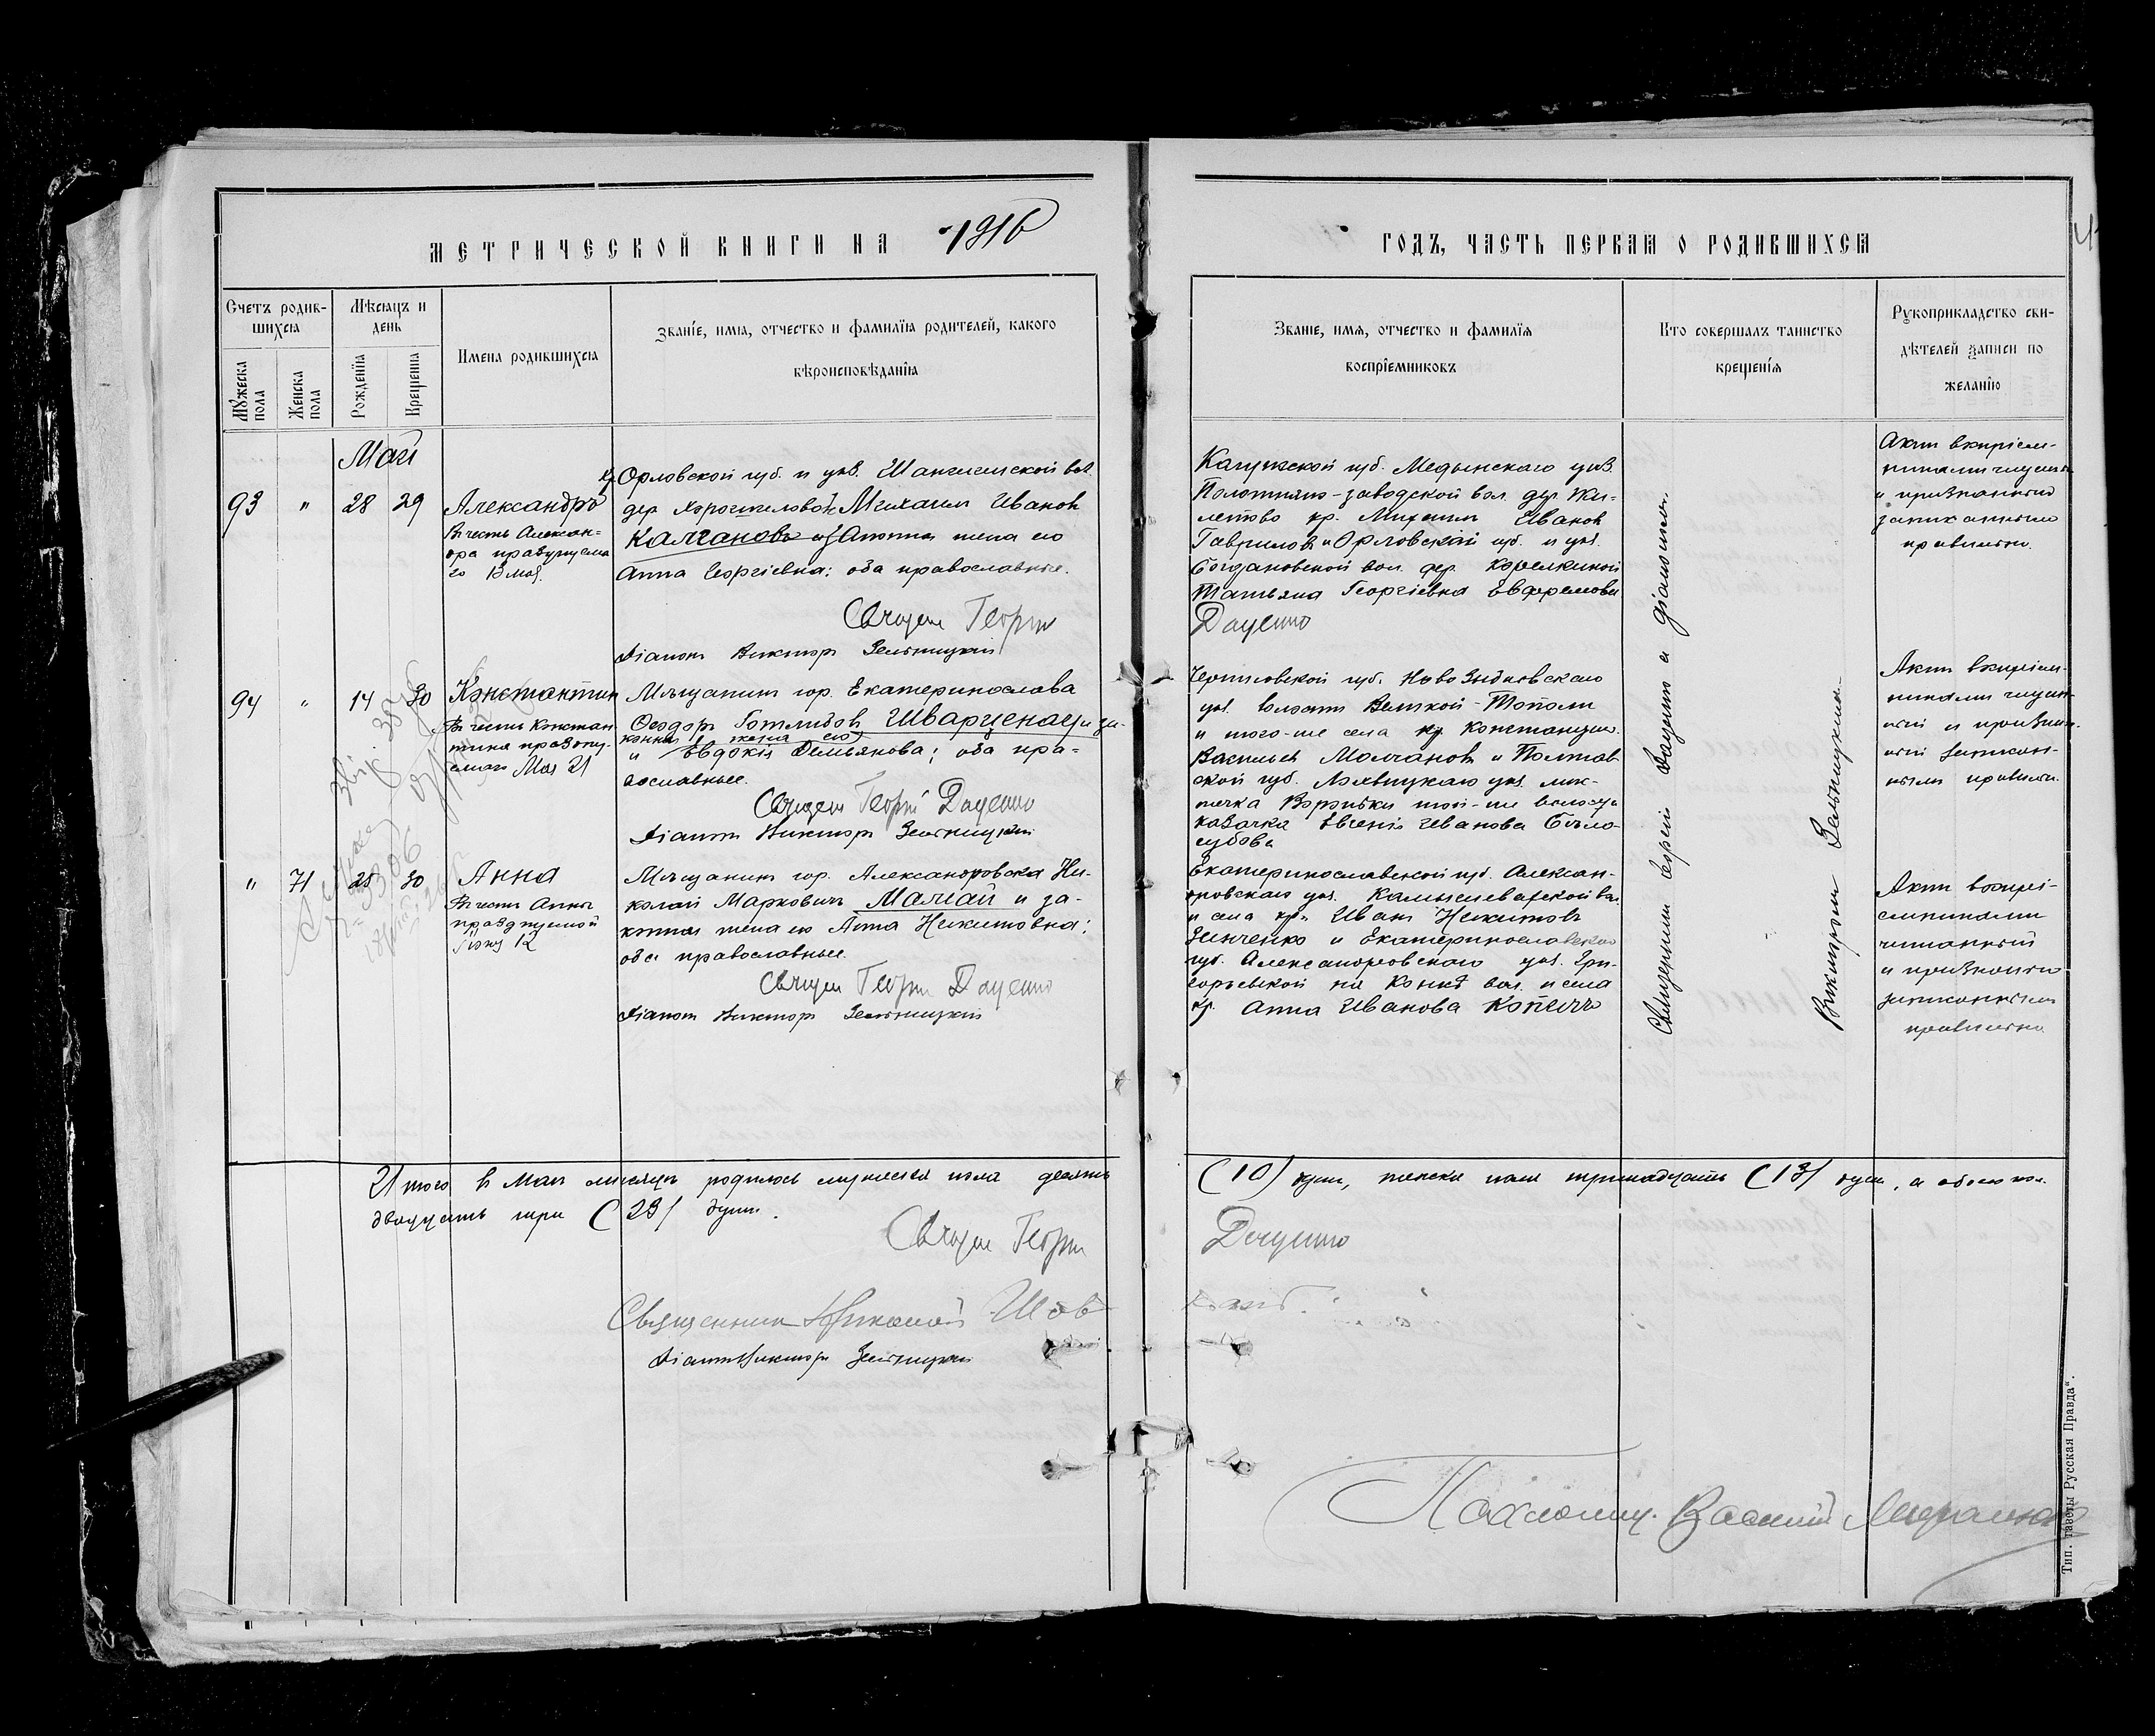 МЕТРИЧЕСКОЙ КНИГИ НА 1916
ГОДЪ, ЧАСТЬ ПЕРВАЯ О РОДИВШИХСЯ
Счетъ родив-
шихся
Мужеска пола
Женска пола
Мѣсяцъ и
день
Рожденія
Крещенія
Имена родившихся
Званіе, имя, отчество и фамилія родителей, какого
вѣроисповѣданія
Званіе, имя, отчество и фамилія
воспріемниковъ
Кто совершалъ таинство
крещенія
Рукоприкладство сви-
дѣтелей записи по
желанію
Май
93 " 28 29
Александръ
Въ честь Алексан-
дра празднуема
го 13 мая.
Орловской губ. и уѣз. вол.
дер. Михаилъ Ивановъ
Калгановъ и законная жена его
Анна Георгіевна: оба православные.
Священ Георгій
Діаконъ Викторъ Зельницкій
Калужской губ. Медынскаго уѣз.
Полотняно-заводской вол. дер. Жи-
летово кр. Михаилъ Ивановъ
Гавриловъ и Орловской губ. и уѣз.
Богдановской вол. дер. Корелкиной
Татьяна Георгіевна Евфремова
Даценко
Актъ воспріем-
никами читанъ
и признанный
записаннымъ
правильно.
94 " 14 30
Константин
Въ честь Констан
тина празну-
емаго Мая 21
Мѣщанинъ гор. Екатеринослава
Ѳеодоръ Готлибовъ Шварценац и за-
конная жена его
Евдокія Демьянова; оба пра-
вославные.
Священ Георгій Даценко
Діаконъ Викторъ Зельницкій
Черниговской губ. Новозыбковскаго
уѣз. волости Великой-Тополи
и того-же села кр. Константинъ
Васильевъ Молчановъ и Полтав
ской губ. Лохвицкаго уѣз. мѣс-
течка Вороньки той-же волости
казачка Евгенія Иванова Бѣло-
зубова
Актъ воспріем-
никами читан-
ный и признан-
ный записан-
нымъ правильно.
" 71 28 30
Анна
Въ честь Анны
празднуемой
Іюня 12
Мѣщанинъ гор. Александровска Ни-
колай Марковичъ Малгай и за-
конная жена его Анна Никитовна;
оба православные.
Священ Георгій Даценко
Діаконъ Викторъ Зельницкій
Екатеринославской губ. Алексан-
дровскаго уѣз. Камышевахской вол.
и села кр. Иванъ Никитовъ
Зинченко и Екатеринославской
губ. Александровскаго уѣз. Гри-
горьевской на Конкѣ вол. и села
кр. Анна Иванова Копечъ
Актъ воспрі-
емниками
читанный
и признанно
записаннымъ
правильно
Священникъ Георгій Даценко съ діакономъ
Викторомъ Зельницкимъ
Итого въ Маѣ мѣсяцѣ родилось мужеска пола десять
(10) душ, женска пола тринадцать (13) душ, а обоего пол.
двадцать три (23) душ.
Священ Георгій
Даценко
Священникъ Николай
Діаконъ Викторъ Зельницкій
Псаломщ. Василій
Тип. газеты „Русская Правда“.